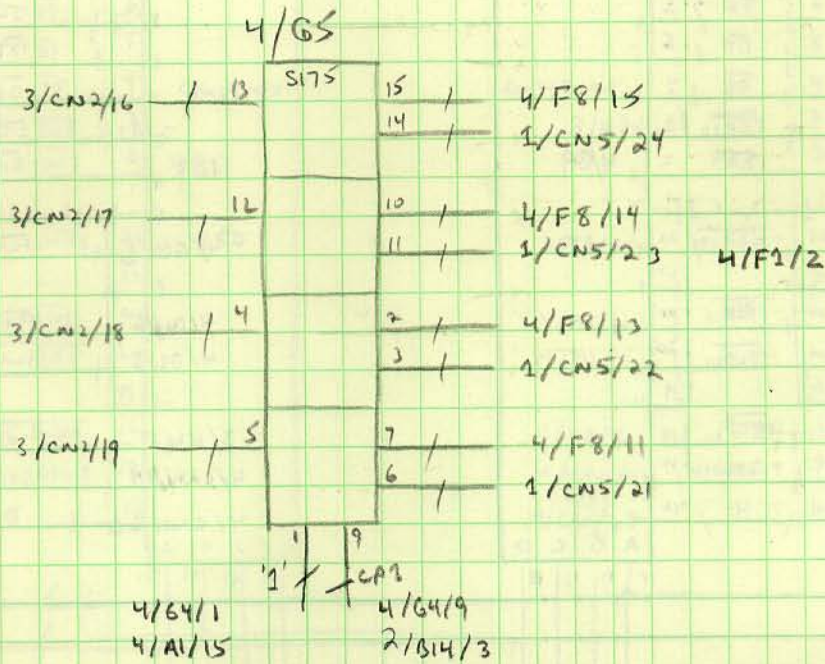 4/G5
S175
3/CN2/16 13 15 4/F8/15
14 1/CN5/24
3/CN2/17 12 10 4/F8/14
11 1/CN5/23 4/F1/2
3/CN2/18 4 2 4/F8/13
3 1/CN5/22
3/CN2/19 5 7 4/F8/11
6 1/CN5/21
1 9
'1'
4/G4/1 4/G4/9
4/A1/15 2/B14/3